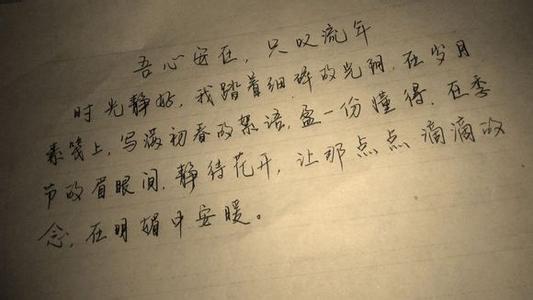 吾心安在，只叹流年
时光静好，我踏着细碎的光阴，在岁月
素笺上，写满初春的絮语，盈一份懂得，在季
节的眉眼间，静待花开，让那点点滴滴的
念，在明媚中安暖。